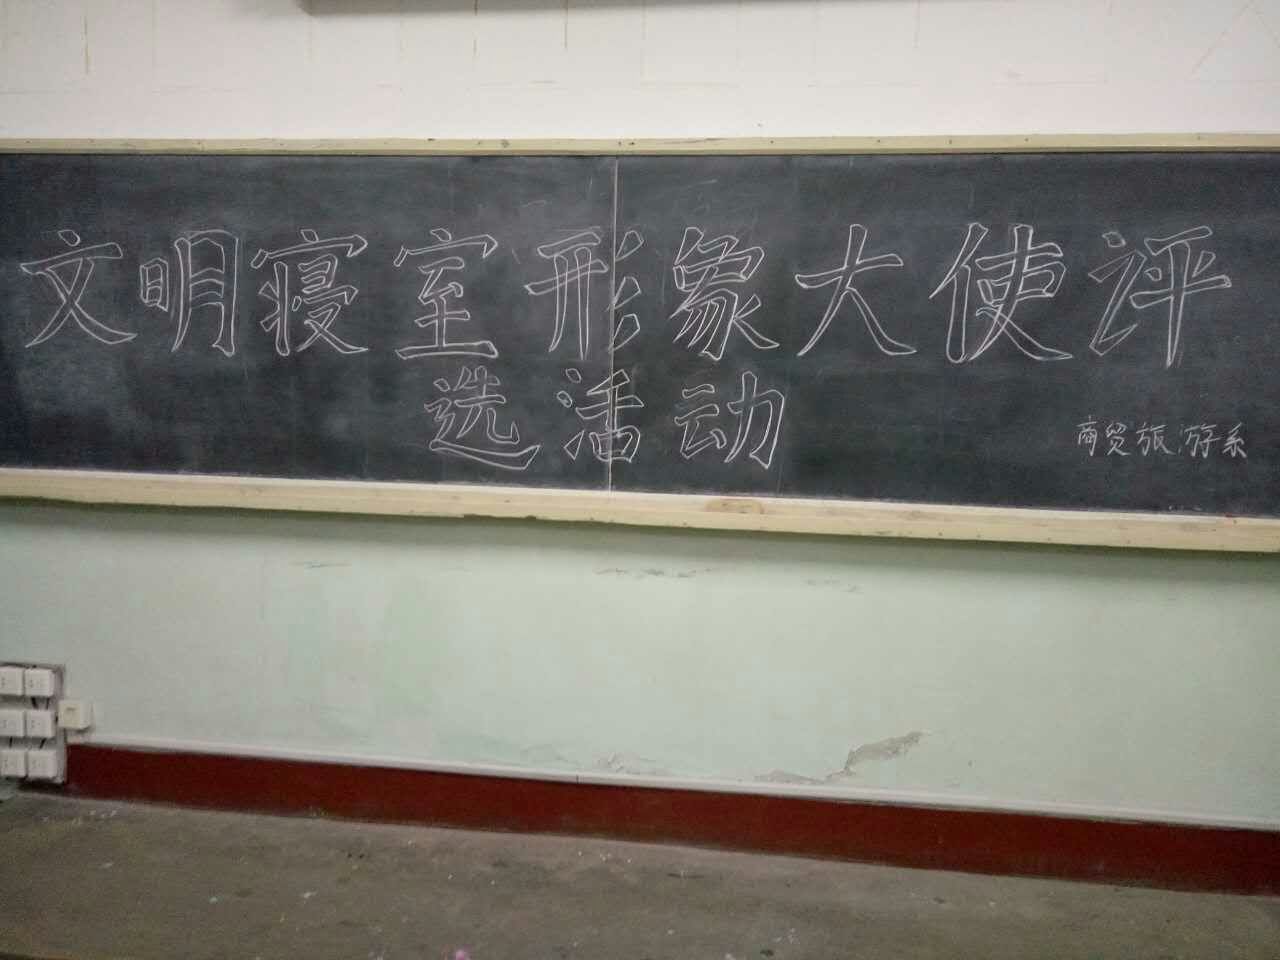 文明寝室形象大使评
选活动
商贸旅游系